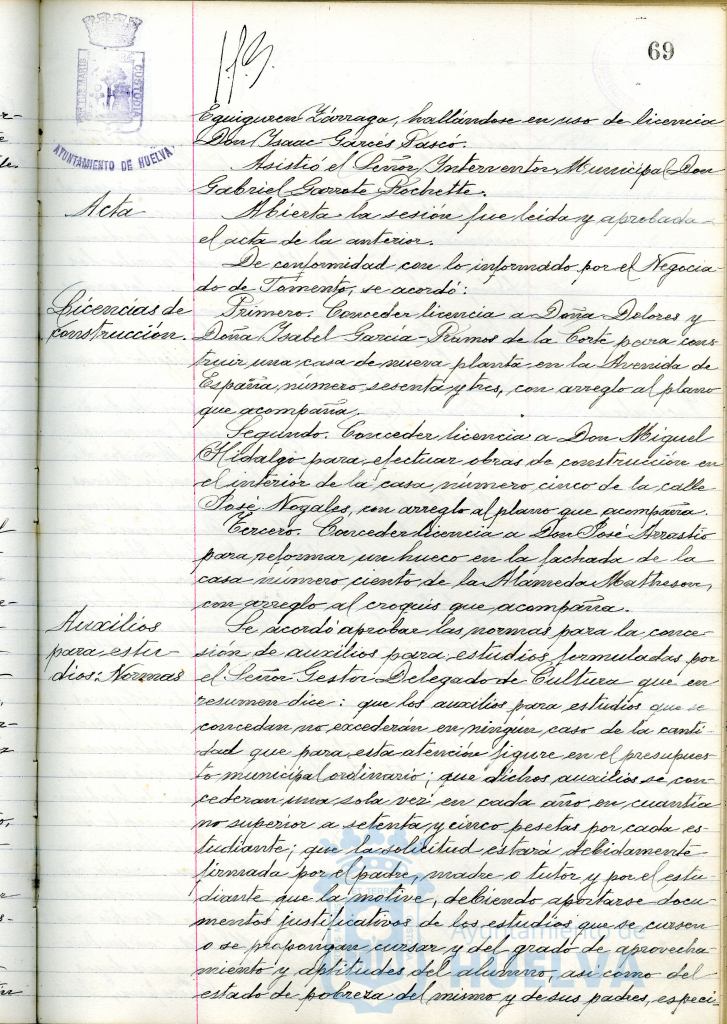 69
AYUNTAMIENTO DE HUELVA
Eguiguren Zárraga, hallándose en uso de licencia
Don Isaac Garcés Pascó.
Asistió el Señor Interventor Municipal Don
Gabriel Garrote Rochette.
Acta
Abierta la sesión fue leída y aprobada
el acta de la anterior.
De conformidad con lo informado por el Negocia-
do de Fomento, se acordó:
Licencias de
construcción.
Primero. Conceder licencia a Doña Dolores y
Doña Isabel García-Ramos de la Corte para cons-
truir una casa de nueva planta en la Avenida de
España, número sesenta y tres, con arreglo al plano
que acompaña.
Segundo. Conceder licencia a Don Miguel
Hidalgo para efectuar obras de construcción en
el interior de la casa número cinco de la calle
José Nogales, con arreglo al plano que acompaña.
Tercero. Conceder licencia a Don José Arrastio
para reformar un hueco en la fachada de la
casa número ciento de la Alameda Matheson,
con arreglo al croquis que acompaña.
Auxilios
para estu-
dios: Normas
Se acordó aprobar las normas para la conce-
sión de auxilios para estudios formuladas por
el Señor Gestor Delegado de Cultura que en
resumen dice: que los auxilios para estudios que se
concedan no excederán en ningún caso de la canti-
dad que para esta atención figure en el presupues-
to municipal ordinario; que dichos auxilios se con-
cederan una sola vez en cada año en cuantía
no superior a setenta y cinco pesetas por cada es-
tudiante; que la solicitud estará debidamente
firmada por el padre, madre o tutor y por el estu-
diante que la motive, debiendo aportarse docu-
mentos justificativos de los estudios que se cursen
o se propongan cursar y del grado de aprovecha-
miento y aptitudes del alumno, así como del
estado de pobreza del mismo y de sus padres, especi-
Ayuntamiento de
HUELVA